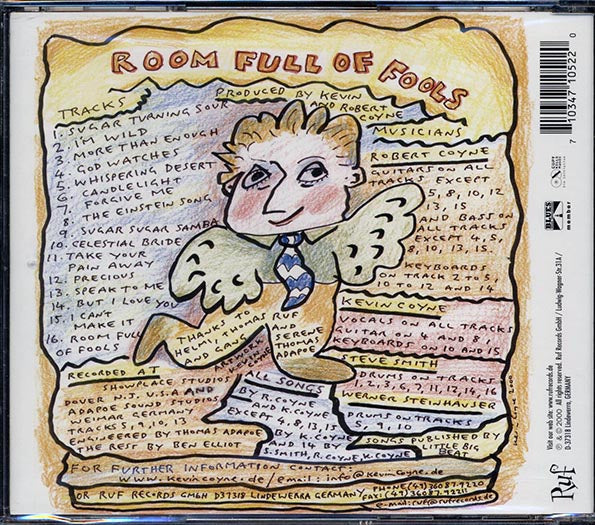 ROOM FULL OF FOOLS
PRODUCED BY KEVIN
AND ROBERT
COYNE
TRACKS
1. SUGAR TURNING SOUR
2. I'M WILD
3. MORE THAN ENOUGH
4. GOD WATCHES
5. WHISPERING DESERT
6. CANDLELIGHT
7. FORGIVE ME
8. THE EINSTEIN SONG
9. SUGAR SUGAR SAMBA
10. CELESTIAL BRIDE
11. TAKE YOUR
PAIN AWAY
12. PRECIOUS
13. SPEAK TO ME
14. BUT I LOVE YOU
15. I CAN'T
MAKE IT
16. ROOM FULL
OF FOOLS
MUSICIANS
ROBERT COYNE
GUITARS ON ALL
TRACKS EXCEPT
5, 8, 10, 12
13, 15
AND BASS ON
ALL TRACKS
EXCEPT 4, 5,
8, 10, 13, 15.
KEYBOARDS
ON TRACK 2 TO 5,
10 TO 12 AND 14
KEVIN COYNE
VOCALS ON ALL TRACKS
GUITAR ON 4 AND 8,
KEYBOARDS ON 10 AND 15
STEVE SMITH
DRUMS ON TRACKS
1, 2, 3, 6, 7, 11, 12, 14, 16
WERNER STEINHAUSER
DRUMS ON TRACKS
5, 9, 10
SONGS PUBLISHED BY
LITTLE BIG
BEAT
THANKS TO
HELMI, THOMAS RUF
AND GANG
AND
SERENE
THOMAS
ADAPOE
ARTWORK
KEVIN
COYNE
RECORDED AT
SHOWPLACE STUDIOS
DOVER N.J. U.S.A AND
ADAPOE SOUND STUDIOS
WEIMAR GERMANY
TRACKS 5, 9, 10, 13
ENGINEERED BY THOMAS ADAPOE
THE REST BY BEN ELLIOT
ALL SONGS
BY R. COYNE
AND K. COYNE
EXCEPT 4, 8, 13, 15
BY K. COYNE
AND 14 BY
S. SMITH, R. COYNE, K. COYNE
FOR FURTHER INFORMATION CONTACT:
www.kevincoyne.de/email: info@kevincoyne.de
OR RUF RECORDS GMBH D37318 LINDEWERRA, GERMANY,
PHONE (49) 36087-9220
FAX: (49) 36087-92211
e-mail: ruf@rufrecords.de
7 10347 10522 0
BLUES
member
Visit our web site: www.rufrecords.de
℗ & © 2000 All rights reserved. Ruf Records GmbH / Ludwig Wagner Str. 31A /
D-37318 Lindewerra, GERMANY
Ruf